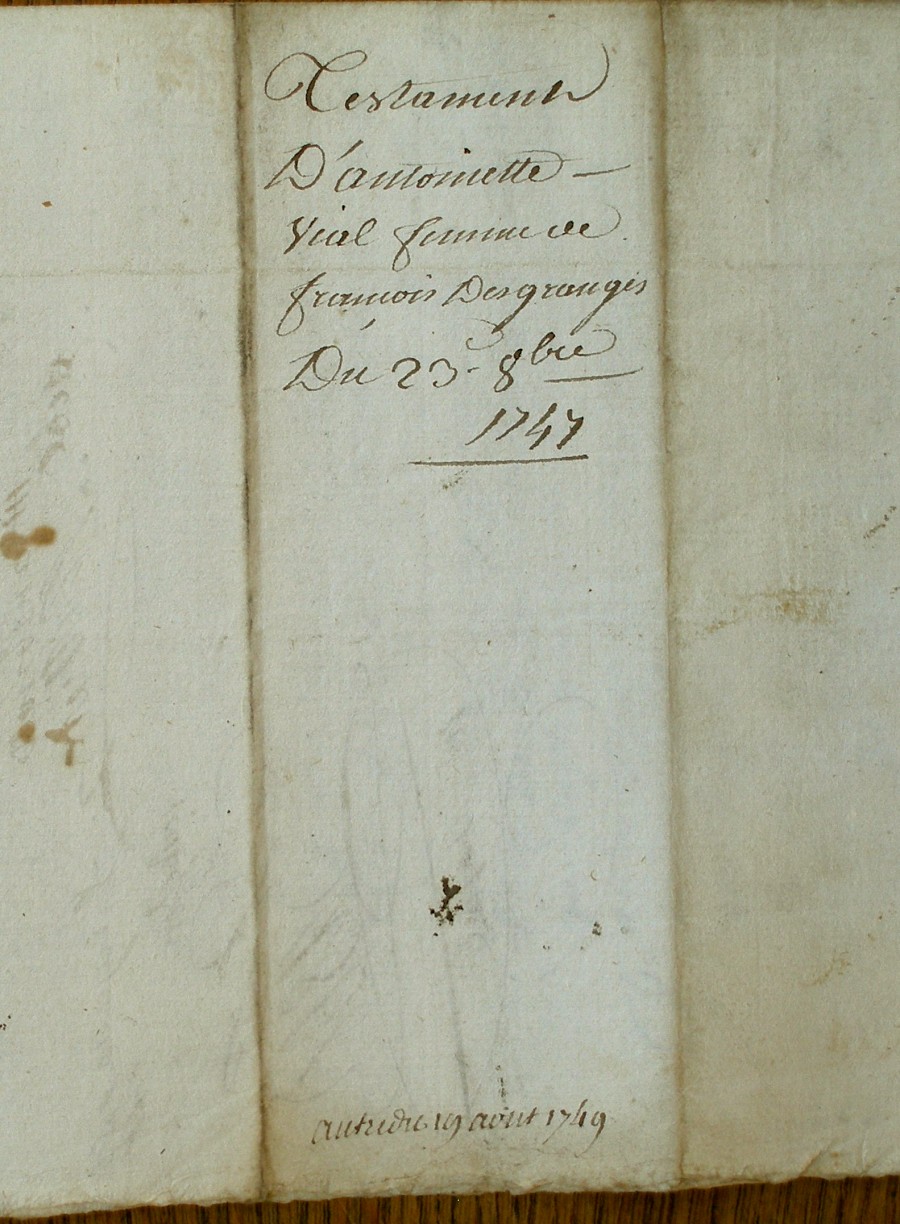 Testament
D'antoinette —
Vial femme de
francois Desgranges
Du 23e 8bre
1747
autre du 19 aout 1749